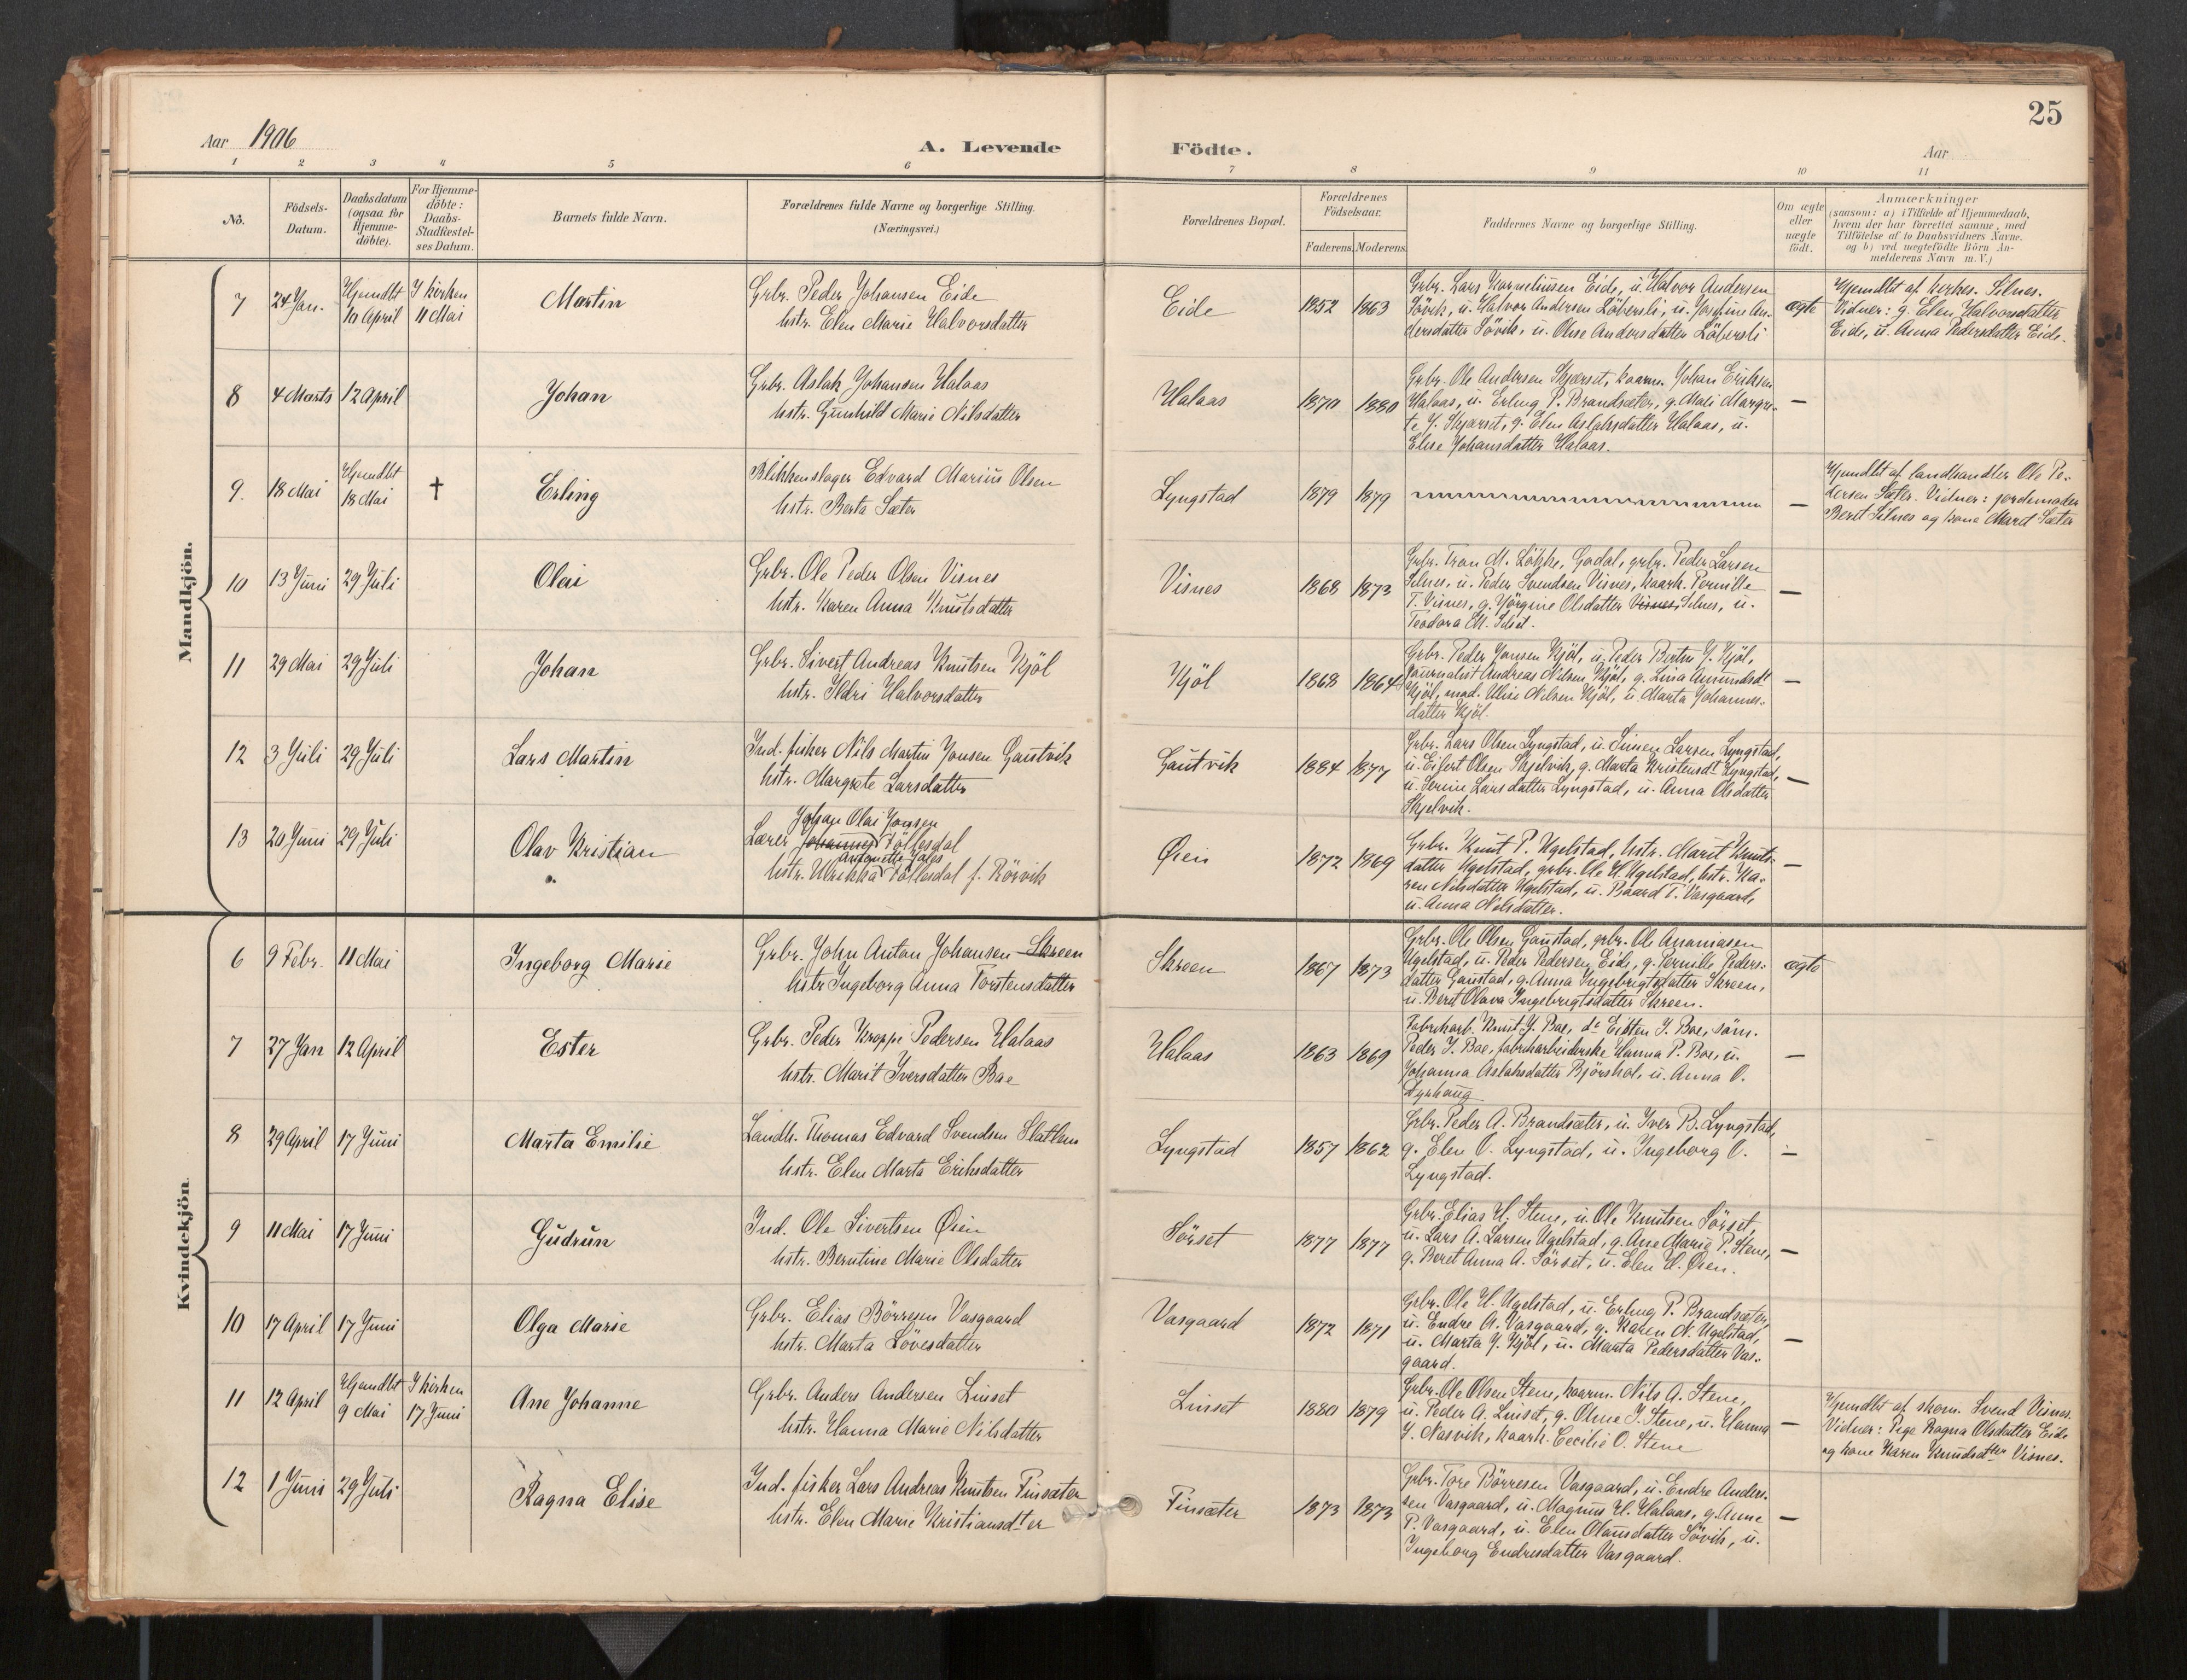 25
Aar 1906
A. Levende Födte.
Aar
1 2 3 4 5 6 7 8 9 10 11
No.
Födsels-
Datum.
Daabsdatum
(ogsaa for
Hjemme-
döbte).
For Hjemme-
döbte:
Daabs-
Stadfæstel-
ses Datum.
Barnets fulde Navn.
Forældrenes fulde Navne og borgerlige Stilling.
(Næringsvei.)
Forældrenes Bopæl.
Forældrenes
Födselsaar.
Faderens. Moderens.
Faddernes Navne og borgerlige Stilling.
Om ægte
eller
uægte
födt.
Anmærkninger
(saasom: a) i Tilfælde af Hjemmedaab,
hvem der har forrettet samme, med
Tilföielse af to Daabsvidners Navne.
og b) ved uægtefödte Börn An-
melderens Navn m. V.)
Mandkjön.
7
24 Jan.
Hjemdbt
10 April
I kirken
11 Mai
Martin
Grbr. Peder Johansen Eide
hstr. Elen Marie Halvorsdatter
Eide
1852 1863
Grbr. Lars Korneliussen Eide, u. Halvor Andersen
Sövik, u. Halvor Andersen Löbersli, u. Josefine An-
dersdatter Sövik, u. Oluse Andersdatter Löbersli
ægte
Hjemdbt af kirkes. Silnes.
Vidner: g. Elen Halvorsdatter
Eide, u. Anna Pedersdatter Eide.
8
4 Marts
12 April
Johan
Grbr. Aslak Johansen Halaas
hstr. Gunhild Marie Nilsdatter
Halaas
1870 1880
Grbr. Ole Andersen Skjærset, kaarm. Johan Eriksen
Halaas, u. Erling P. Brandsæter, g. Mali Margre-
te J. Skjærset, g. Elen Aslaksdatter Halaas, u.
Elise Johansdatter Halaas.
—
9.
18 Mai
Hjemdbt
18 Mai
†
Erling
Blikkenslager Edvard Marius Olsen
hstr. Berta Sæter
Lyngstad
1879 1879
—
Hjemdbt af landhandler Ole Pe-
dersen Sæter. Vidner: jordemoder
Beret Silnes og kone Marit Sæter
10
13 Juni
29 Juli
Olai
Grbr. Ole Peder Olsen Visnes
hstr. Karen Anna Knutsdatter
Visnes
1868 1873
Grbr. Tron M. Lökke, Godal, grbr. Peder Larsen
Silnes, u. Peder Svendsen Visnes, kaark. Pernille
T. Visnes, g. Jörgine Olsdatter Visnes, Silnes, u.
Teodora M. Ilset.
—
11
29 Mai
29 Juli
Johan
Grbr. Sivert Andreas Knutsen Kjöl
hstr. Ildri Halvorsdatter
Kjöl
1868 1864
Grbr. Peder Jonsen Kjöl, u. Peder Bertin J. Kjöl,
journalist Andreas Nilsen Kjöl, g. Lina Amundsdt
Kjöl, mad. Alise Nilsen Kjöl, u. Marta Johannes-
datter Kjöl.
—
12
3 Juli
29 Juli
Lars Martin
Ind. fisker Nils Martin Jonsen Gautvik
hstr. Margrete Larsdatter
Gautvik
1884 1877
Grbr. Lars Olsen Lyngstad, u. Simen Larsen Lyngstad,
u. Eifert Olsen Skjelvik, g. Marta Kristensdt Lyngstad,
u. Serine Larsdatter Lyngstad, u. Anna Olsdatter
Skjelvik.
—
13
20 Juni
29 Juli
Olav Kristian
Johan Olai Jonsen
Lærer Johannes Föllesdal
Antonette Jales
hstr. Ulrikka Föllesdal f. Rörvik
Øien
1872 1869
Grbr. Knut P. Ugelstad, hstr. Marit Knuts-
datter Ugelstad, grbr. Ole H. Ugelstad, hstr. Ka-
ren Nilsdatter Ugelstad, u. Baard T. Vasgaard,
u. Anna Nilsdatter.
—
Kvindekjön
6
9 Febr.
11 Mai
Ingeborg Marie
Grbr. John Anton Johansen Skreen
hstr Ingeborg Anna Torstensdatter
Skreen
1867 1873
Grbr. Ole Olsen Gaustad, grbr. Ole Ananiasen
Ugelstad, u. Peder Pedersen Eide, g. Pernille Peders-
datter Gaustad, g. Anna Ingebrigtsdatter Skreen,
u. Berit Olava Ingebrigtsdatter Skreen.
ægte
7
27 Jan
12 April
Ester
Grbr. Peder Kroppe Pedersen Halaas
hstr. Marit Iversdatter Boe
Halaas
1863 1869
Fabrikarb. Knut J. Boe, do Eisten J. Boe, söm.
Peder J. Boe, fabrikarbeiderske Hanna P. Boe, u.
Johanna Aslaksdatter Björshol, u. Anna O.
Dyrhaug
—
8
29 April
17 Juni
Marta Emilie
Landh. Thomas Edvard Svendsen Slatlem
hstr. Elen Marta Eriksdatter
Lyngstad
1857 1862
Grbr. Peder A. Brandsæter, u. Iver B. Lyngstad,
g. Elen O. Lyngstad, u. Ingeborg O.
Lyngstad.
—
9
11 Mai
17 Juni
Gudrun
Ind. Ole Sivertsen Øien
hstr. Berntine Marie Olsdatter
Sörset
1877 1877
Grbr. Elias H. Stene, u. Ole Knutsen Sörset,
u. Lars A. Larsen Ugelstad, g. Ane Marie P. Stene,
g. Beret Anna A. Sörset, u. Elen H. Øien.
—
10
17 April
17 Juni
Olga Marie
Grbr. Elias Börresen Vasgaard
hstr. Marta Sövesdatter
Vasgaard
1872 1871
Grbr. Ole H. Ugelstad, u. Erling P. Brandsæter,
u. Endre A. Vasgaard, g. Karen N. Ugelstad,
u. Marta J. Kjöl, u. Marta Pedersdatter Vas-
gaard.
—
11
12 April
Hjemdbt
9 Mai
I kirken
17 Juni
Ane Johanne
Grbr. Anders Andersen Linset
hstr. Hanna Marie Nilsdatter
Linset
1880 1879
Grbr. Ole Olsen Stene, kaarm. Nils A. Stene,
u. Peder A. Linset, g. Oline J. Stene, u. Hanna
J. Nasvik, kaark. Cecilie O. Stene
—
Hjemdbt af skom. Svend Visnes.
Vidner: Pige Ragna Olsdatter Eide
og kone Karen Knudsdtter Visnes.
12
1 Juni
29 Juli
Ragna Elise
Ind. fisker Lars Andreas Knutsen Finsæter
hstr. Elen Marie Kristiansdtter
Finsæter
1873 1873
Grbr. Tore Börresen Vasgaard, u. Endre Anders-
sen Vasgaard, u. Magnus H. Halaas, g. Anne
P. Vasgaard, u. Elen Olausdatter Sövik, u.
Ingeborg Endresdatter Vasgaard.
—